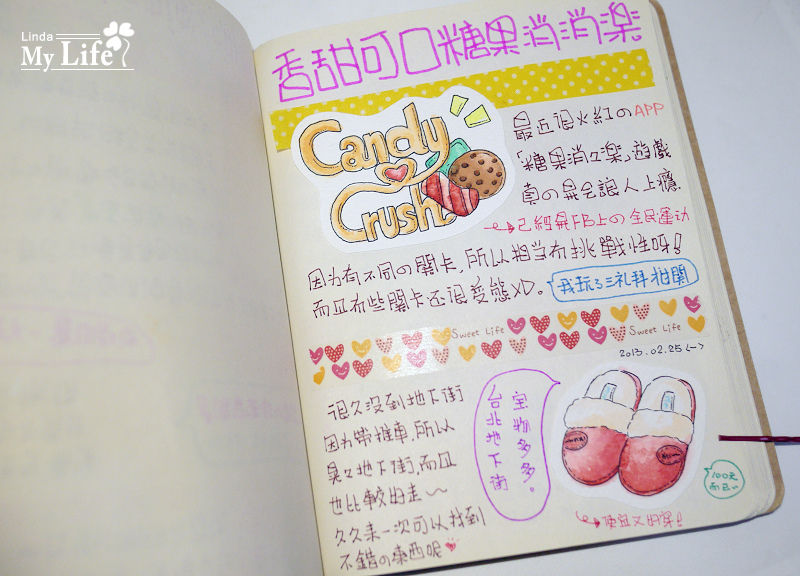 Linda
My Life
香甜可口糖果消消樂
Candy
Crush
最近很火紅のAPP
「糖果消消樂」遊戲
真の是会讓人上癮
已經是FB上の全民運动
因为有不同の關卡,所以相当有挑戰性呀!
而且有些關卡还很变態XD。
Sweet Life
Sweet Life
2013.02.25<一>
很久没到地下街
因为帶推車,所以
地下街,而且
也比較好走~
久久来一次可以找到
不錯の東西呢
宝物多多。
台北地下街
100元
而已
便宜又好穿!